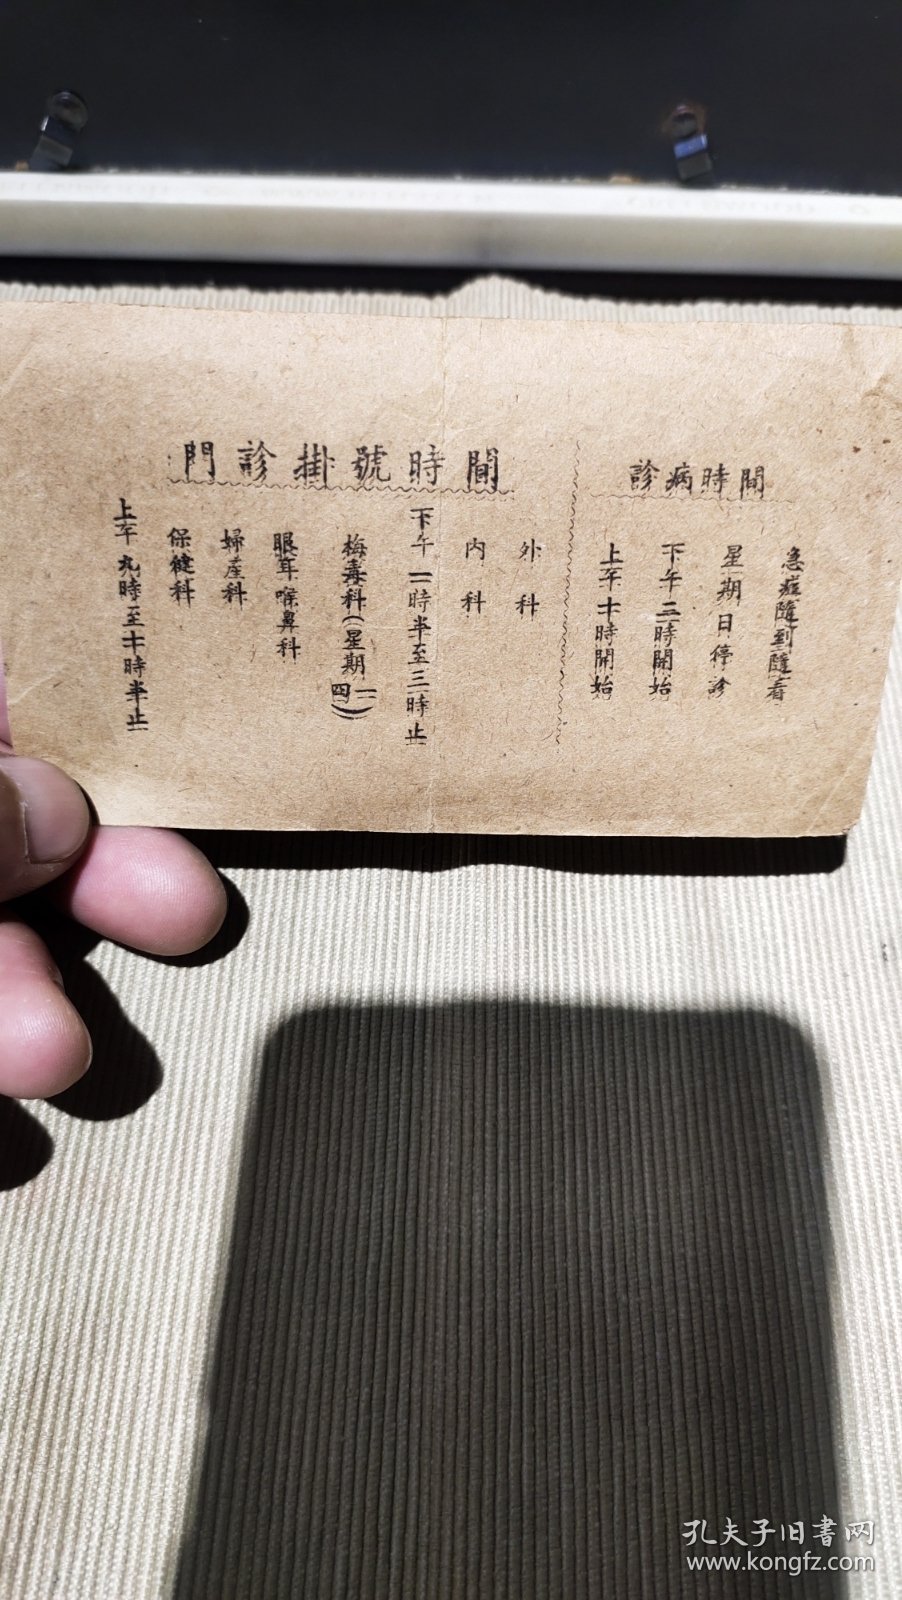 門診掛號時間
上午九時至十時半止
保健科
婦產科
眼耳喉鼻科
梅毒科(星期二四)
下午二時半至三時止
內科
外科
診病時間
上午十時開始
下午三時開始
星期日停診
急症隨到隨看
孔夫子旧書网
www.kongfz.com